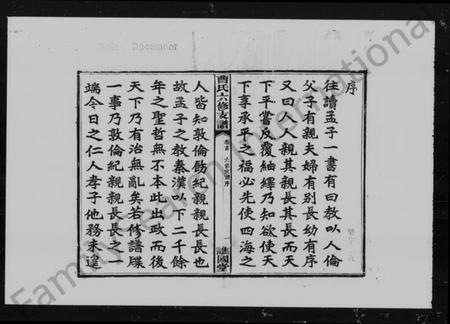 序
往讀孟子一書有曰教以人倫
父子有親夫婦有別長幼有序
又曰人人親其親長其長而天
下平嘗反覆紬繹乃知欲使天
下享承平之福必先使四海之
曹氏六修支譜
卷首
序
一
譙國堂
人皆知敦倫飭紀親親長長也
故孟子之教秦漢以下二千餘
年之聖哲無不本此出政而後
天下乃有治無亂矣若修譜牒
一事乃敦倫紀親親長長之一
端今日之仁人孝子他務未遑
Document